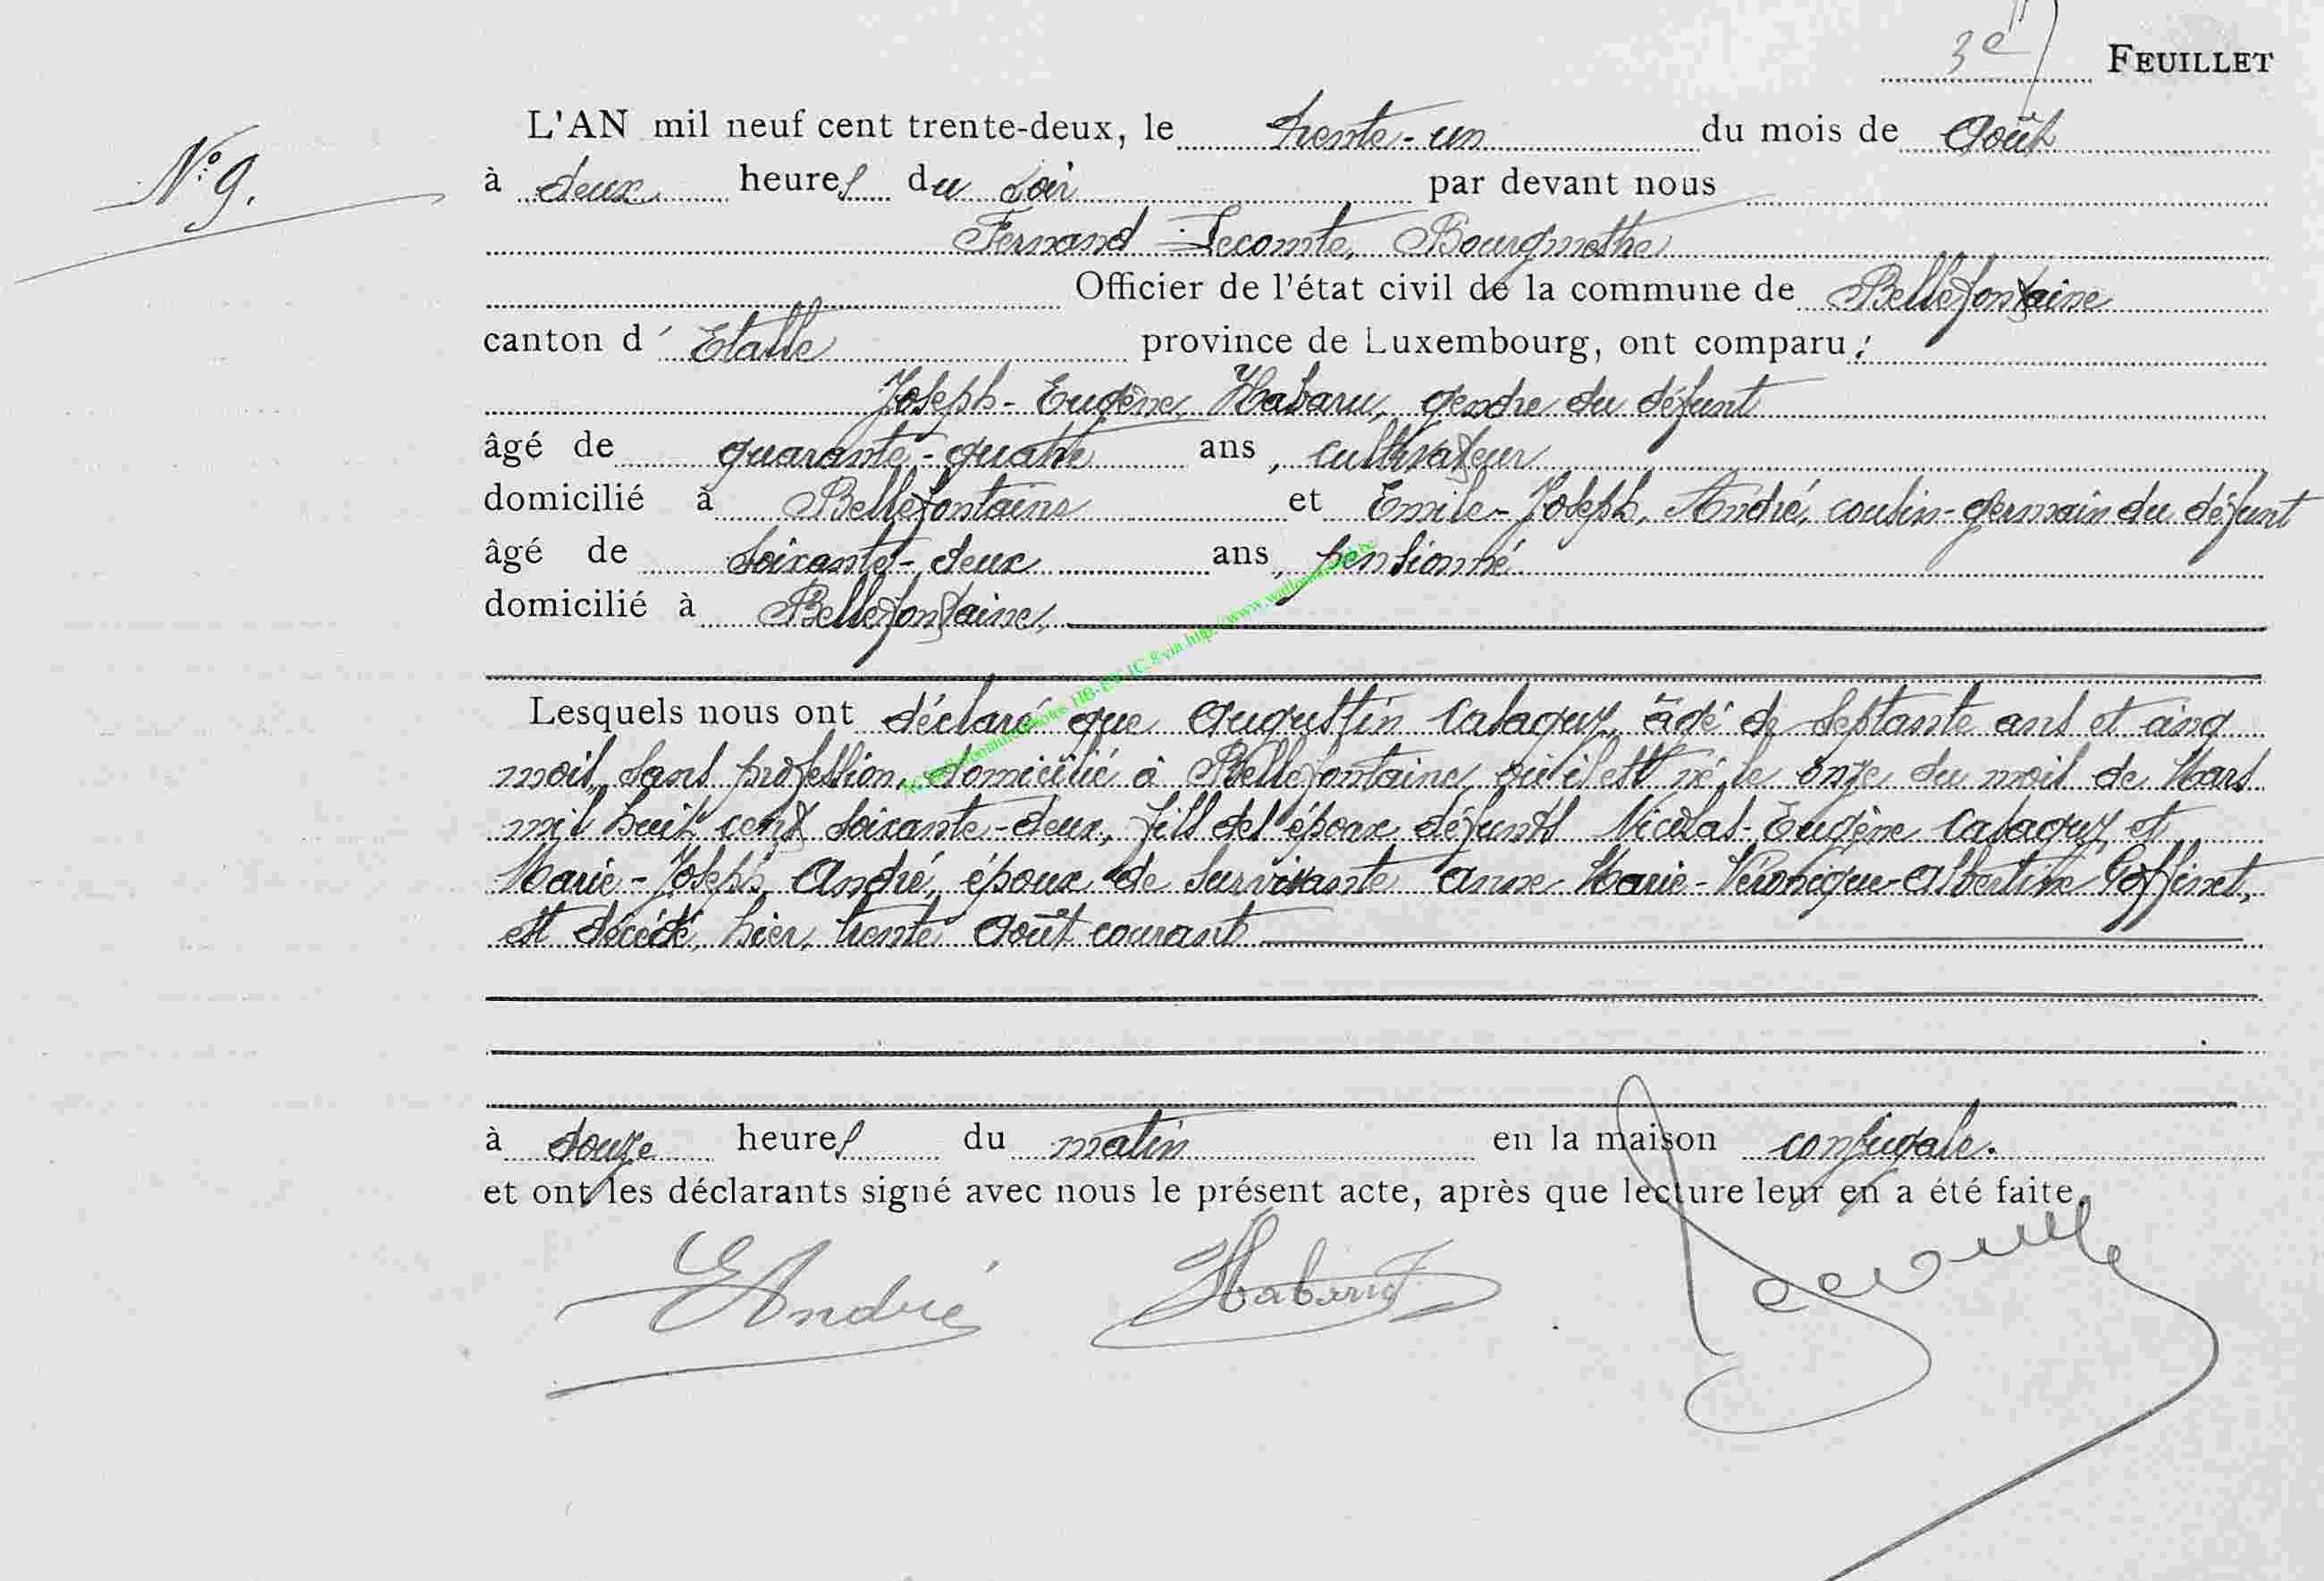 3e FEUILLET
N° 9.
L'AN mil neuf cent trente-deux, le trente-un du mois de Août
à deux heures du soir par devant nous
Fernand Lecomte, Bourgmethe
Officier de l'état civil de la commune de Bellefontaine
canton d' Etalle province de Luxembourg, ont comparu :
Joseph-Eugène, Habaru, gendre du défunt
âgé de quarante-quatre ans, cultivateur
domicilié à Bellefontaine et Emile-Joseph, André, cousin-germain du défunt
âgé de soixante-deux ans, pensionné
domicilié à Bellefontaine,
Lesquels nous ont déclaré que Augustin Casaquy, âgé de septante ans et cinq
mois, sans profession, domicilié à Bellefontaine, où il est né le onze du mois de Mars
mil huit cent soixante-deux, fils des époux défunts Nicolas-Eugène Casaquy et
Marie-Joseph, André, époux de survivante Anne-Marie-Véronique-Albertine Goffinet,
est décédé, hier, trente Août courant
à douze heures du matin en la maison conjugale.
et ont les déclarants signé avec nous le présent acte, après que lecture leur en a été faite.
EAndré Habaru Lecomte